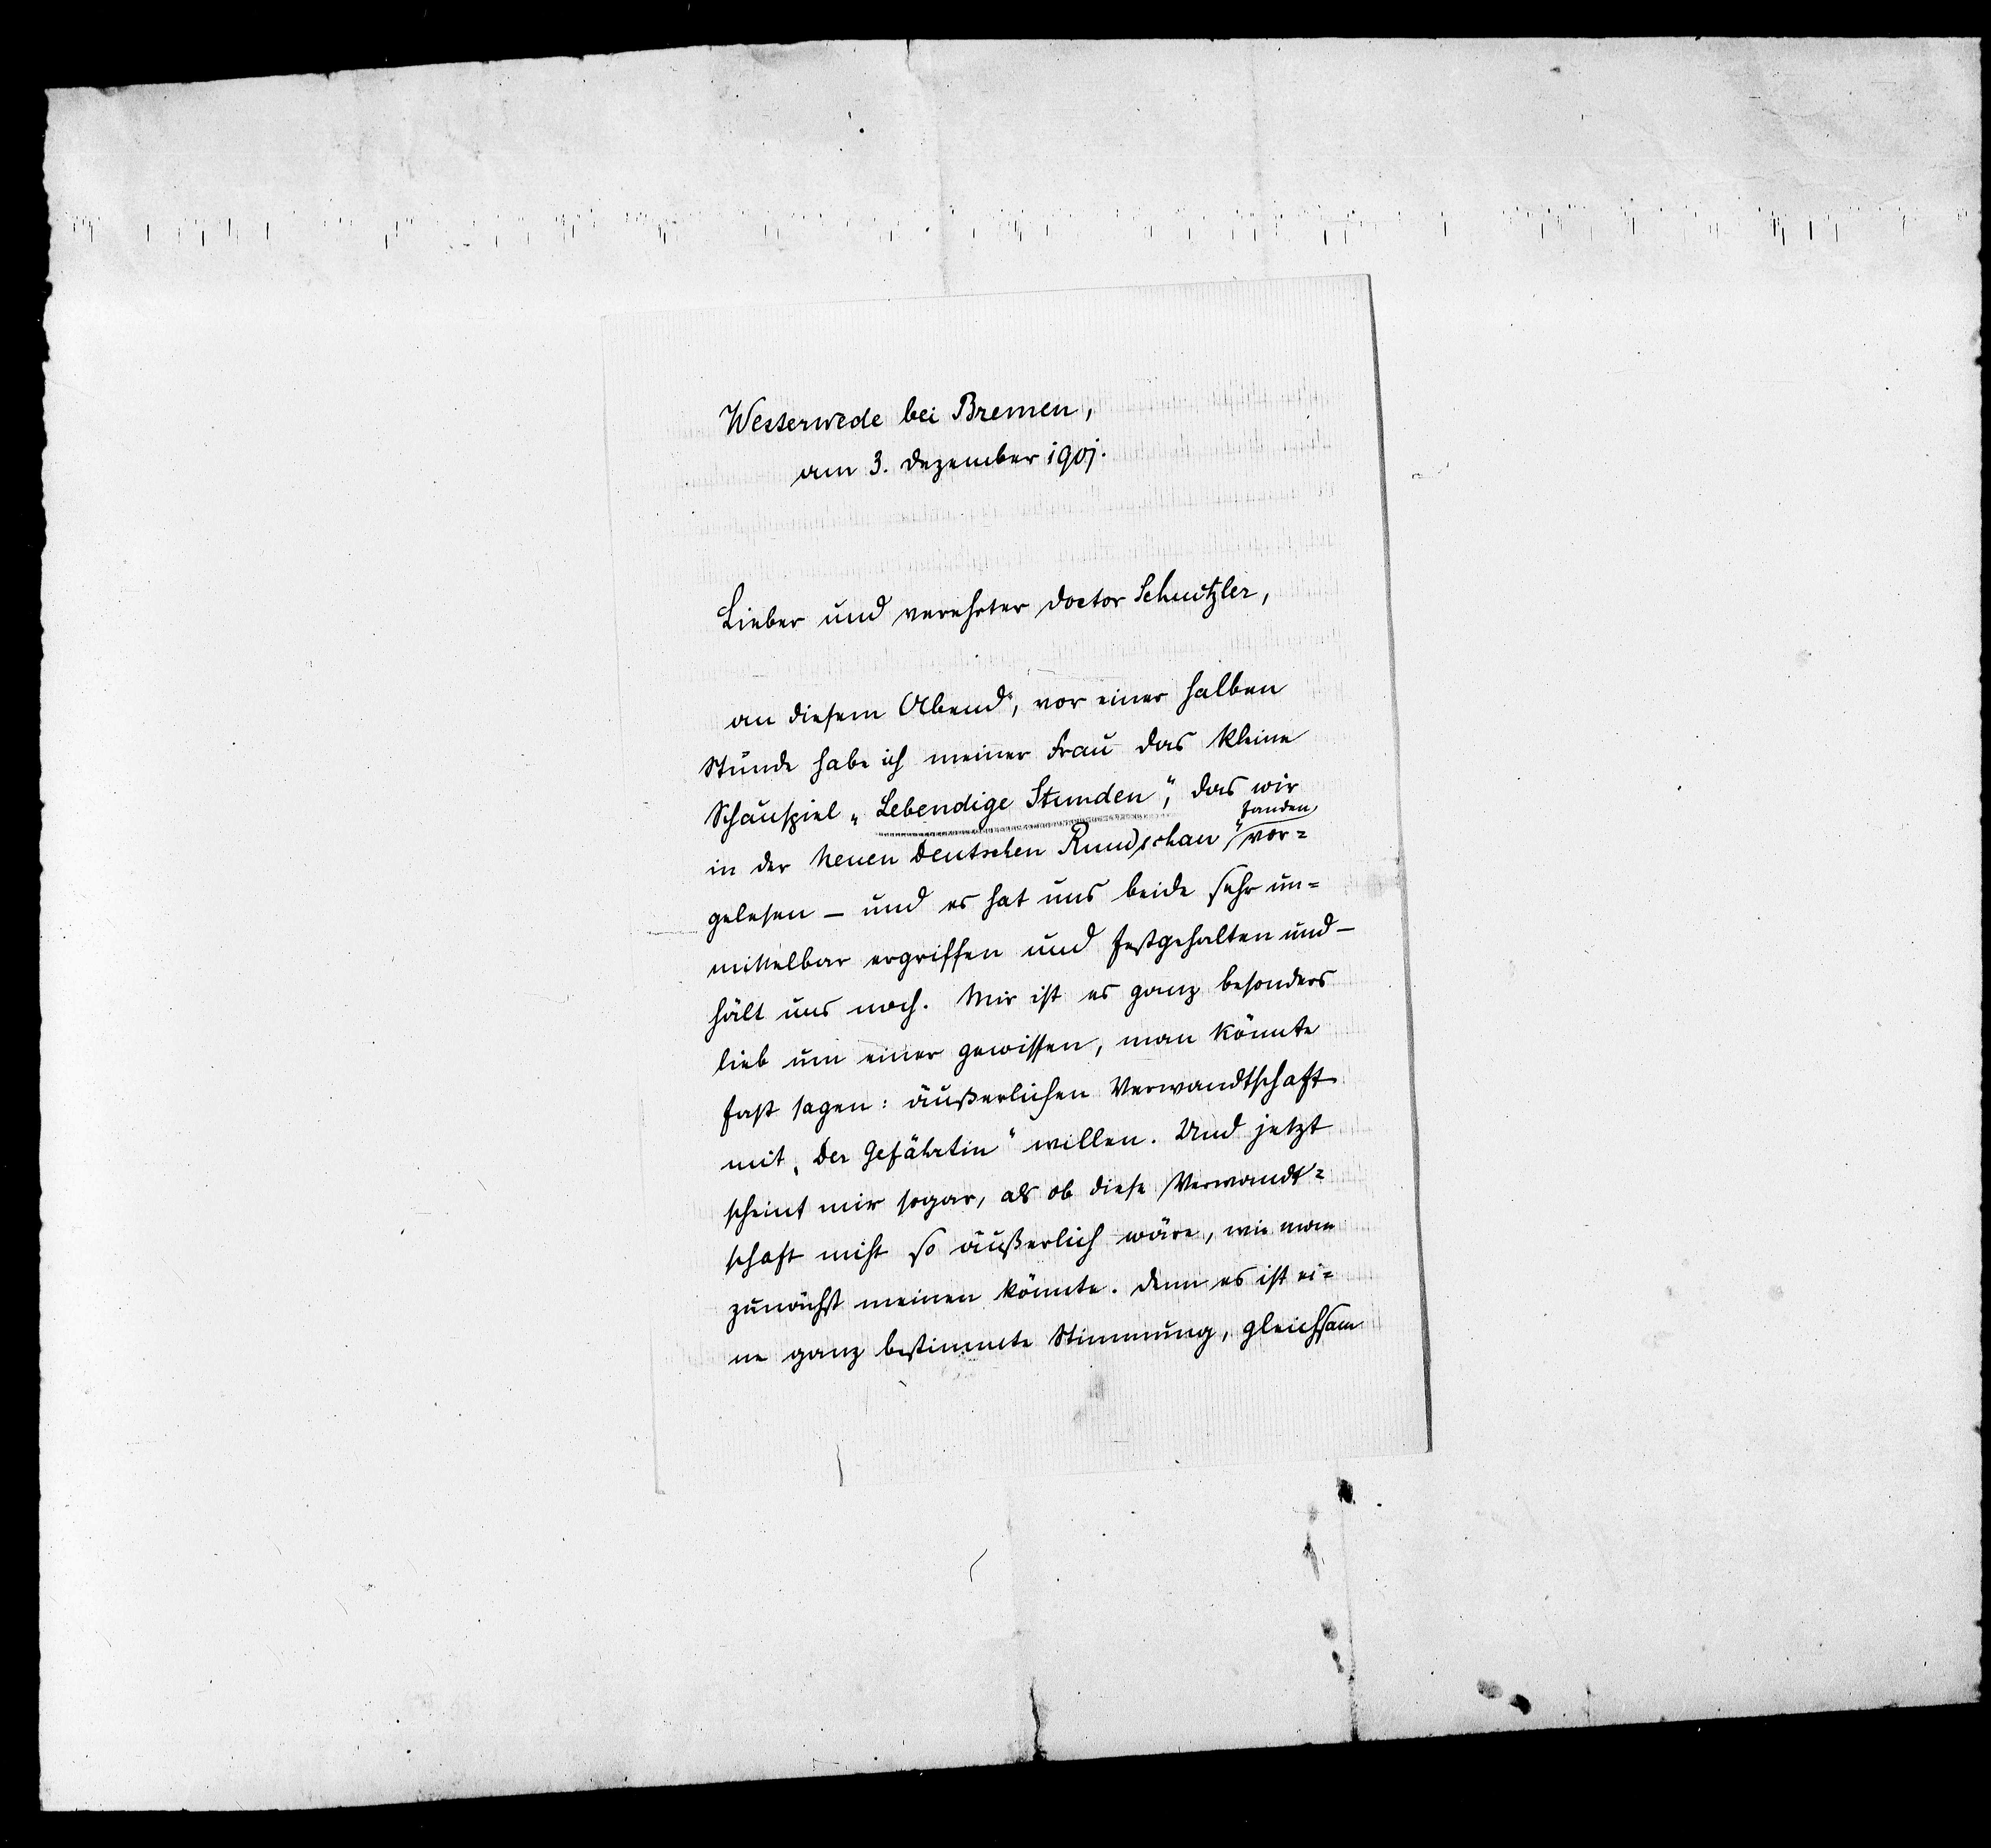 Westerwede bei Bremen,
am 3. Dezember 1901.
Lieber und verehrter Doctor Schnitzler,
an diesem Abend, vor einer halben
Stunde habe ich meiner Frau das kleine
Schauspiel „Lebendige Stunden“, das wir
in der Neuen Deutschen Rundschau“ fanden, vor=
gelesen – und es hat uns beide sehr un=
mittelbar ergriffen und festgehalten und –
hält uns noch. Mir ist es ganz besonders
lieb um einer gewissen, man könnte
fast sagen: äußerlichen Verwandtschaft
mit „Der Gefährtin“ willen. Und jetzt
scheint mir sogar, als ob diese Verwandt=
schaft nicht so äußerlich wäre, wie man
zunächst meinen könnte. Denn es ist ei=
ne ganz bestimmte Stimmung, gleichsam